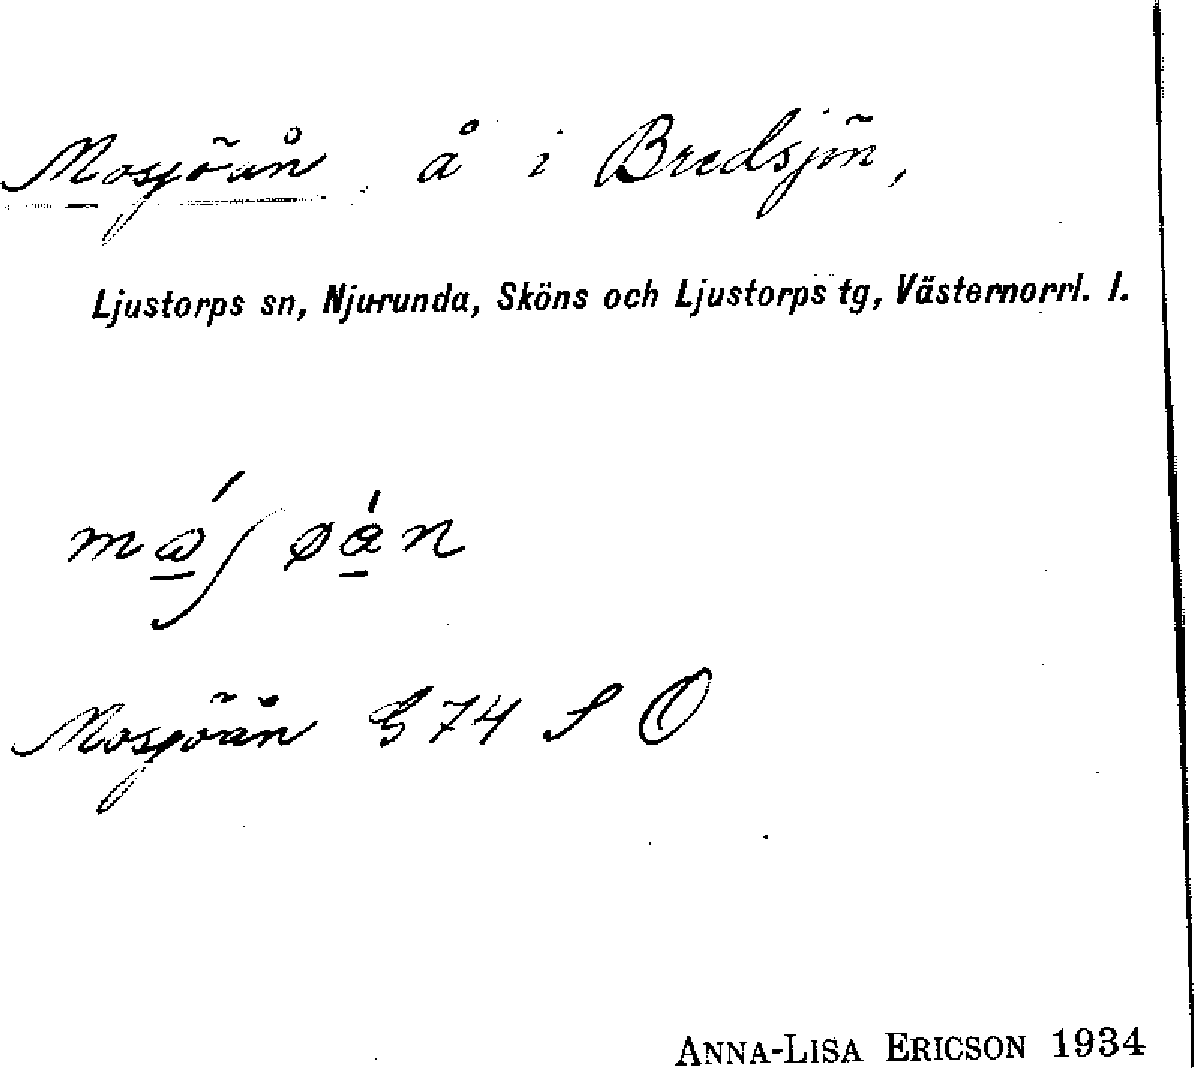 Mosjöån å i Bredsjön,
Ljustorps sn, Njurunda, Sköns och Ljustorps tg, Västernorrl. l.
Mosjöån G 74 S Ö
ANNA-LISA ERICSON 1934